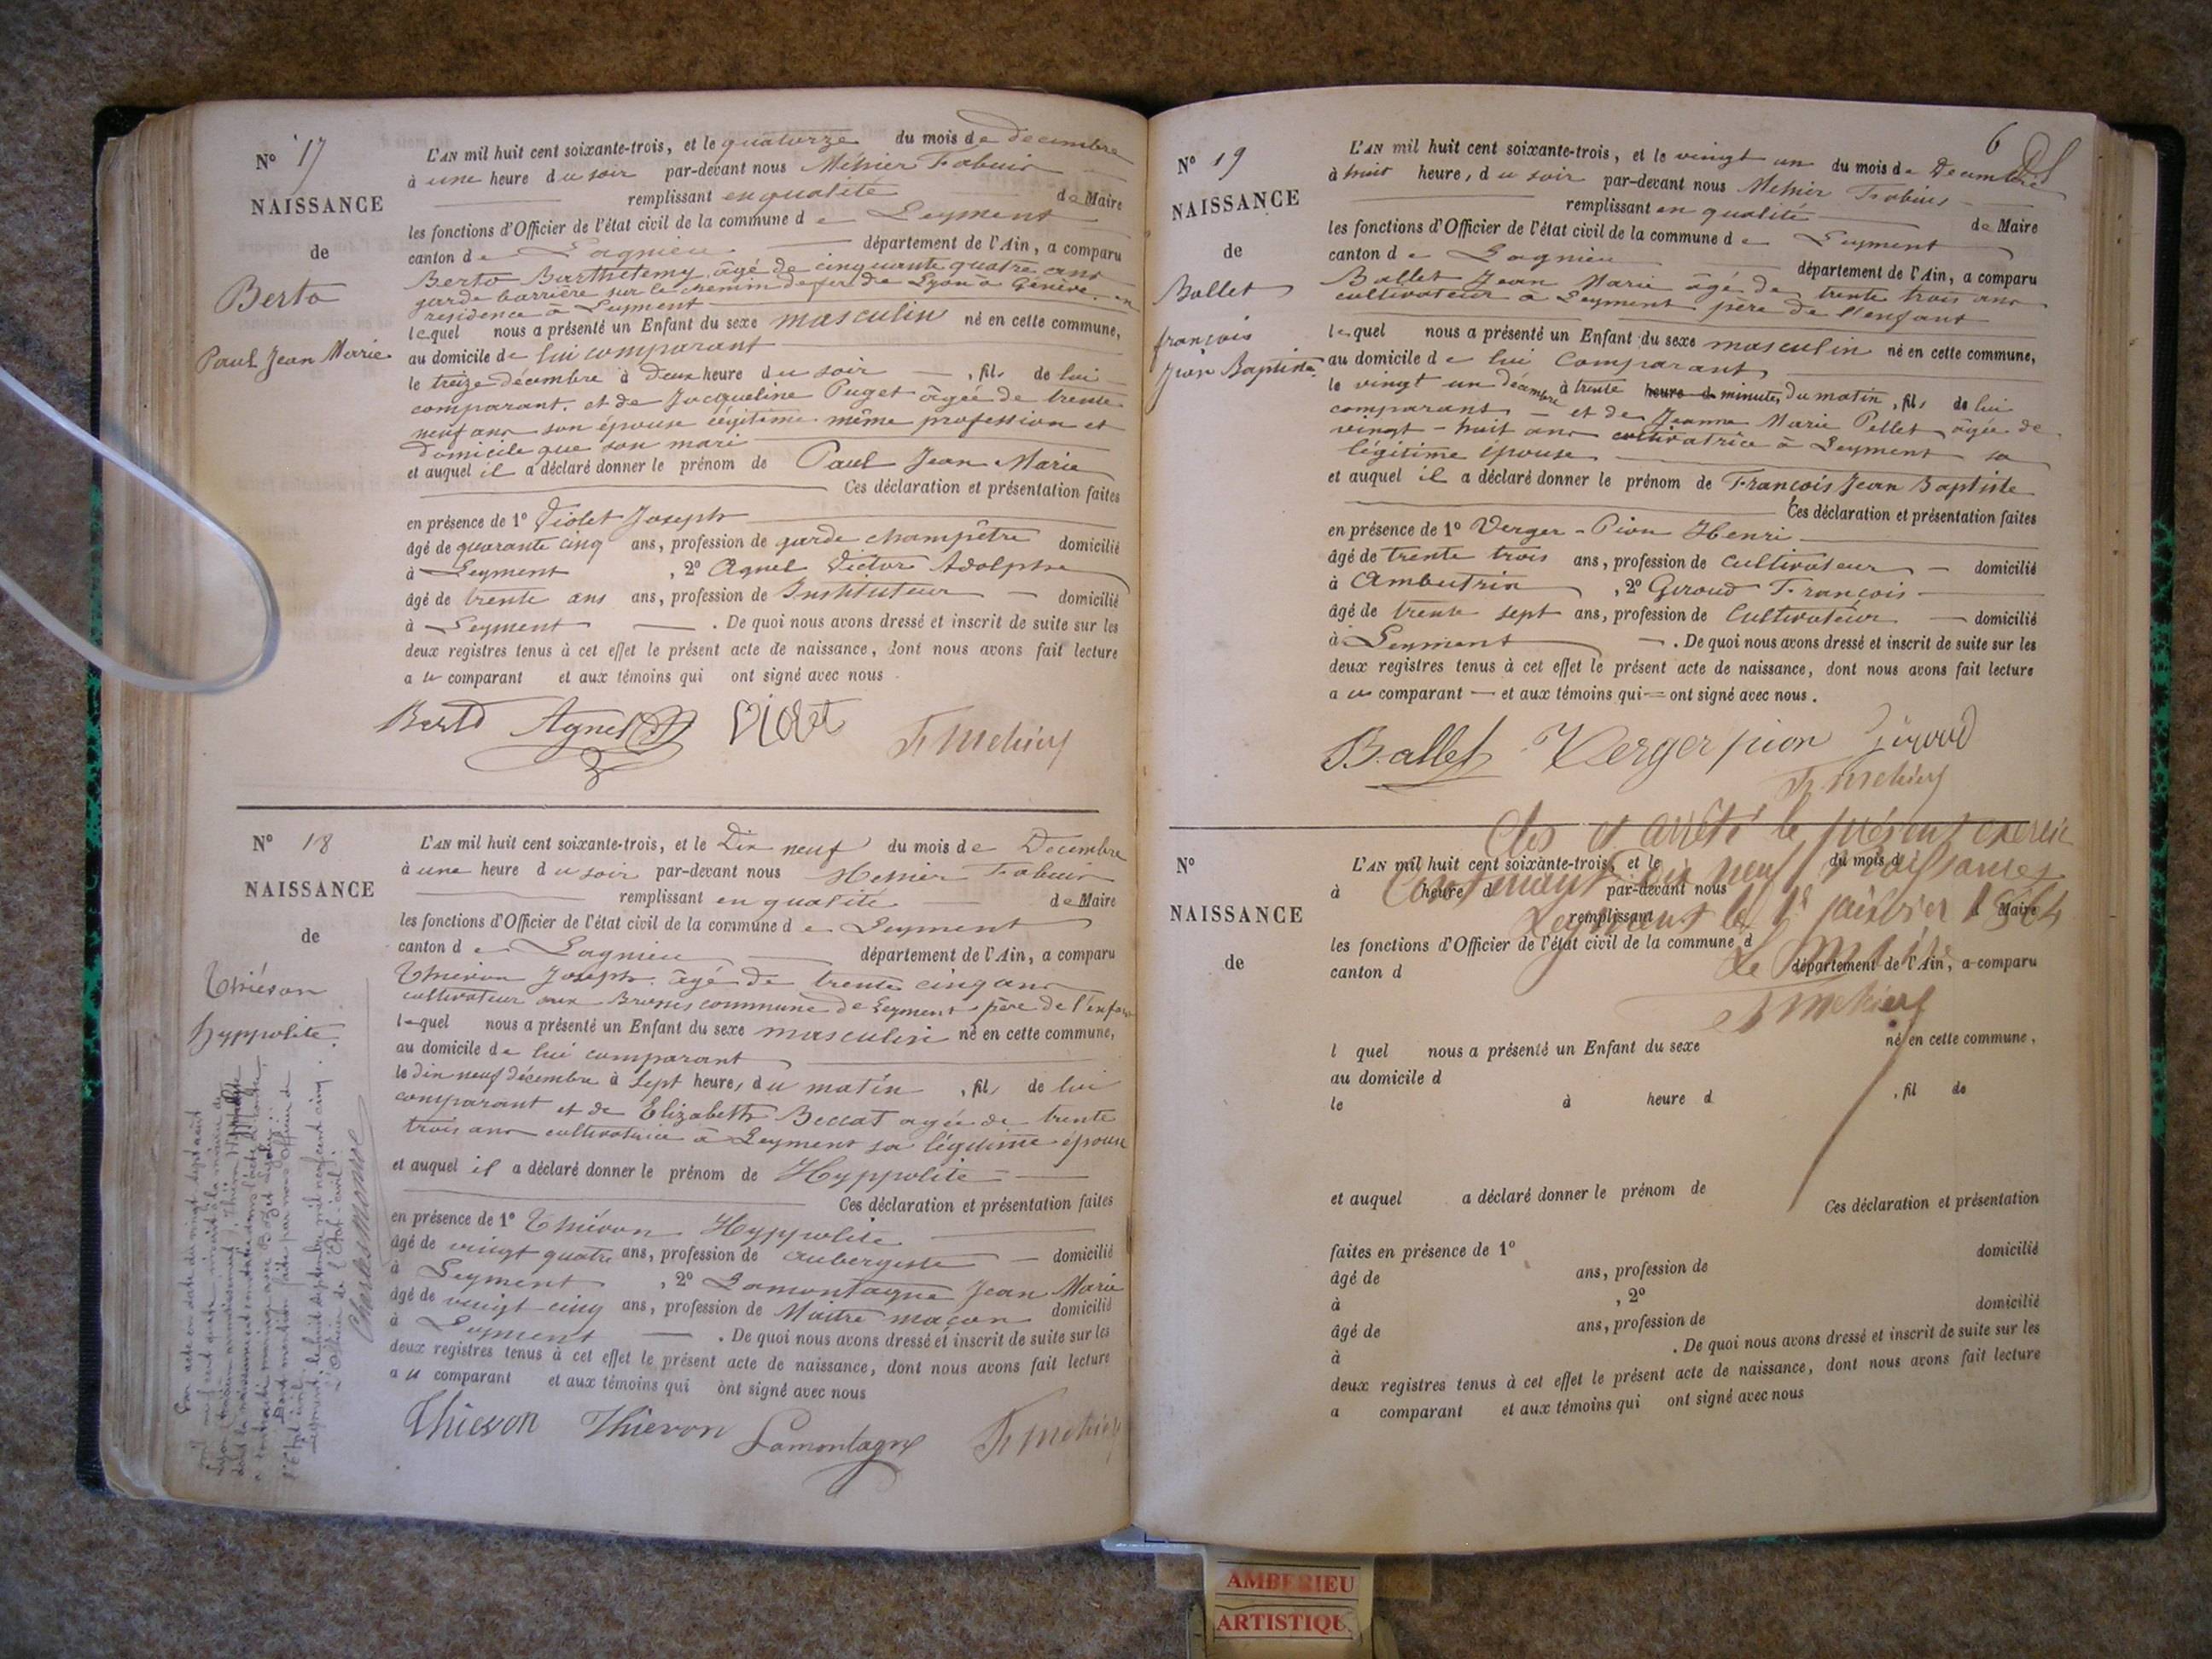 N° 17
NAISSANCE
de
Berto
Paul Jean Marie
L'AN mil huit cent soixante-trois, et le quatorze du mois de décembre
à une heure du soir par-devant nous Méhier Fabien
remplissant en qualité de Maire
les fonctions d'Officier de l'état civil de la commune de Leyment
canton de Lagnieu département de l'Ain, a comparu
Berto Barthélemy, âgé de cinquante quatre ans
garde barrière sur le chemin de fer de Lyon à Genève, en
résidence à Leyment
lequel nous a présenté un Enfant du sexe masculin né en cette commune,
au domicile de lui comparant
le treize décembre à deux heure du soir, fils de lui
comparant. et de Jacqueline Puget âgée de trente
neuf ans son épouse légitime même profession et
domicile que son mari
et auquel il a déclaré donner le prénom de Paul Jean Marie
Ces déclaration et présentation faites
en présence de 1° Violet Joseph
âgé de quarante cinq ans, profession de garde champêtre domicilié
à Leyment, 2° Agnel Victor Adolphe
âgé de trente ans ans, profession de Instituteur domicilié
à Leyment. De quoi nous avons dressé et inscrit de suite sur les
deux registres tenus à cet effet le présent acte de naissance, dont nous avons fait lecture
au comparant et aux témoins qui ont signé avec nous
Berto Agnel Violet
F. Mehier
N° 18
NAISSANCE
de
Thiévon
hyppolite
L'AN mil huit cent soixante-trois, et le Dix neuf du mois de Décembre
à une heure du soir par-devant nous Méhier Fabien
remplissant en qualité de Maire
les fonctions d'Officier de l'état civil de la commune de Leyment
canton de Lagnieu département de l'Ain, a comparu
Thiévon Joseph âgé de trente cinq ans
cultivateur aux commune de Leyment père de l'enfant
lequel nous a présenté un Enfant du sexe masculin né en cette commune,
au domicile de lui comparant
le dix neuf décembre à sept heures du matin, fils de lui
comparant et de Elizabeth Beccat agée de trente
trois ans cultivatrice à Leyment sa légitime épouse
et auquel il a déclaré donner le prénom de Hyppolite
Ces déclaration et présentation faites
en présence de 1° Thiévon Hyppolite
âgé de vingt quatre ans, profession de aubergiste domicilié
à Leyment, 2° Lamontagne Jean Marie
âgé de vingt cinq ans, profession de Maître maçon domicilié
à Leyment. De quoi nous avons dressé et inscrit de suite sur les
deux registres tenus à cet effet le présent acte de naissance, dont nous avons fait lecture
au comparant et aux témoins qui ont signé avec nous
Thievon Thievon Lamontagne F. Mehier
Par acte en date du vingt sept août
mil neuf cent quatre inscrit à la mairie de
a contracté mariage avec
Dont mention faite par nous Officier de
l'État civil
Leyment, le huit septembre mil neuf cent cinq.
L'Officier de l'État-civil
N° 19
NAISSANCE
de
Ballet
françois
Jean Baptiste
6
L'AN mil huit cent soixante-trois, et le vingt un du mois de Decembre
à huit heure, du soir par-devant nous Méhier Fabien
remplissant en qualité de Maire
les fonctions d'Officier de l'état civil de la commune de Leyment
canton de Lagnieu département de l'Ain, a comparu
Ballet Jean Marie âgé de trente trois ans
cultivateur à Leyment père de l'enfant
lequel nous a présenté un Enfant du sexe masculin né en cette commune,
au domicile de lui comparant
le vingt un décembre à trente heure d minutes du matin, fils de lui
comparant et de Jeanne Marie Pellet âgée de
vingt-huit ans cultivatrice à Leyment sa
légitime épouse
et auquel il a déclaré donner le prénom de François Jean Baptiste
Ces déclaration et présentation faites
en présence de 1° Verger-Pion Henri
âgé de trente trois ans, profession de Cultivateur domicilié
à Ambutrix, 2° Giroud François
âgé de trente sept ans, profession de Cultivateur domicilié
à Leyment. De quoi nous avons dressé et inscrit de suite sur les
deux registres tenus à cet effet le présent acte de naissance, dont nous avons fait lecture
au comparant et aux témoins qui ont signé avec nous.
Ballet Verger pion Giroud
F. Mehier
Clos et arrêté le présent
Contenant Dix neuf Naissances
Leyment le 1er janvier 1864
Le Maire
F. Mehier
N°
NAISSANCE
de
L'AN mil huit cent soixante-trois, et le du mois d
à heure d par-devant nous
remplissant d Maire
les fonctions d'Officier de l'état civil de la commune d
canton d département de l'Ain, a comparu
l quel nous a présenté un Enfant du sexe né en cette commune,
au domicile d
le à heure d, fil de
et auquel a déclaré donner le prénom de
Ces déclaration et présentation
faites en présence de 1°
âgé de ans, profession de domicilié
à , 2°
âgé de ans, profession de domicilié
à . De quoi nous avons dressé et inscrit de suite sur les
deux registres tenus à cet effet le présent acte de naissance, dont nous avons fait lecture
a comparant et aux témoins qui ont signé avec nous
AMBERIEU
ARTISTIQUE